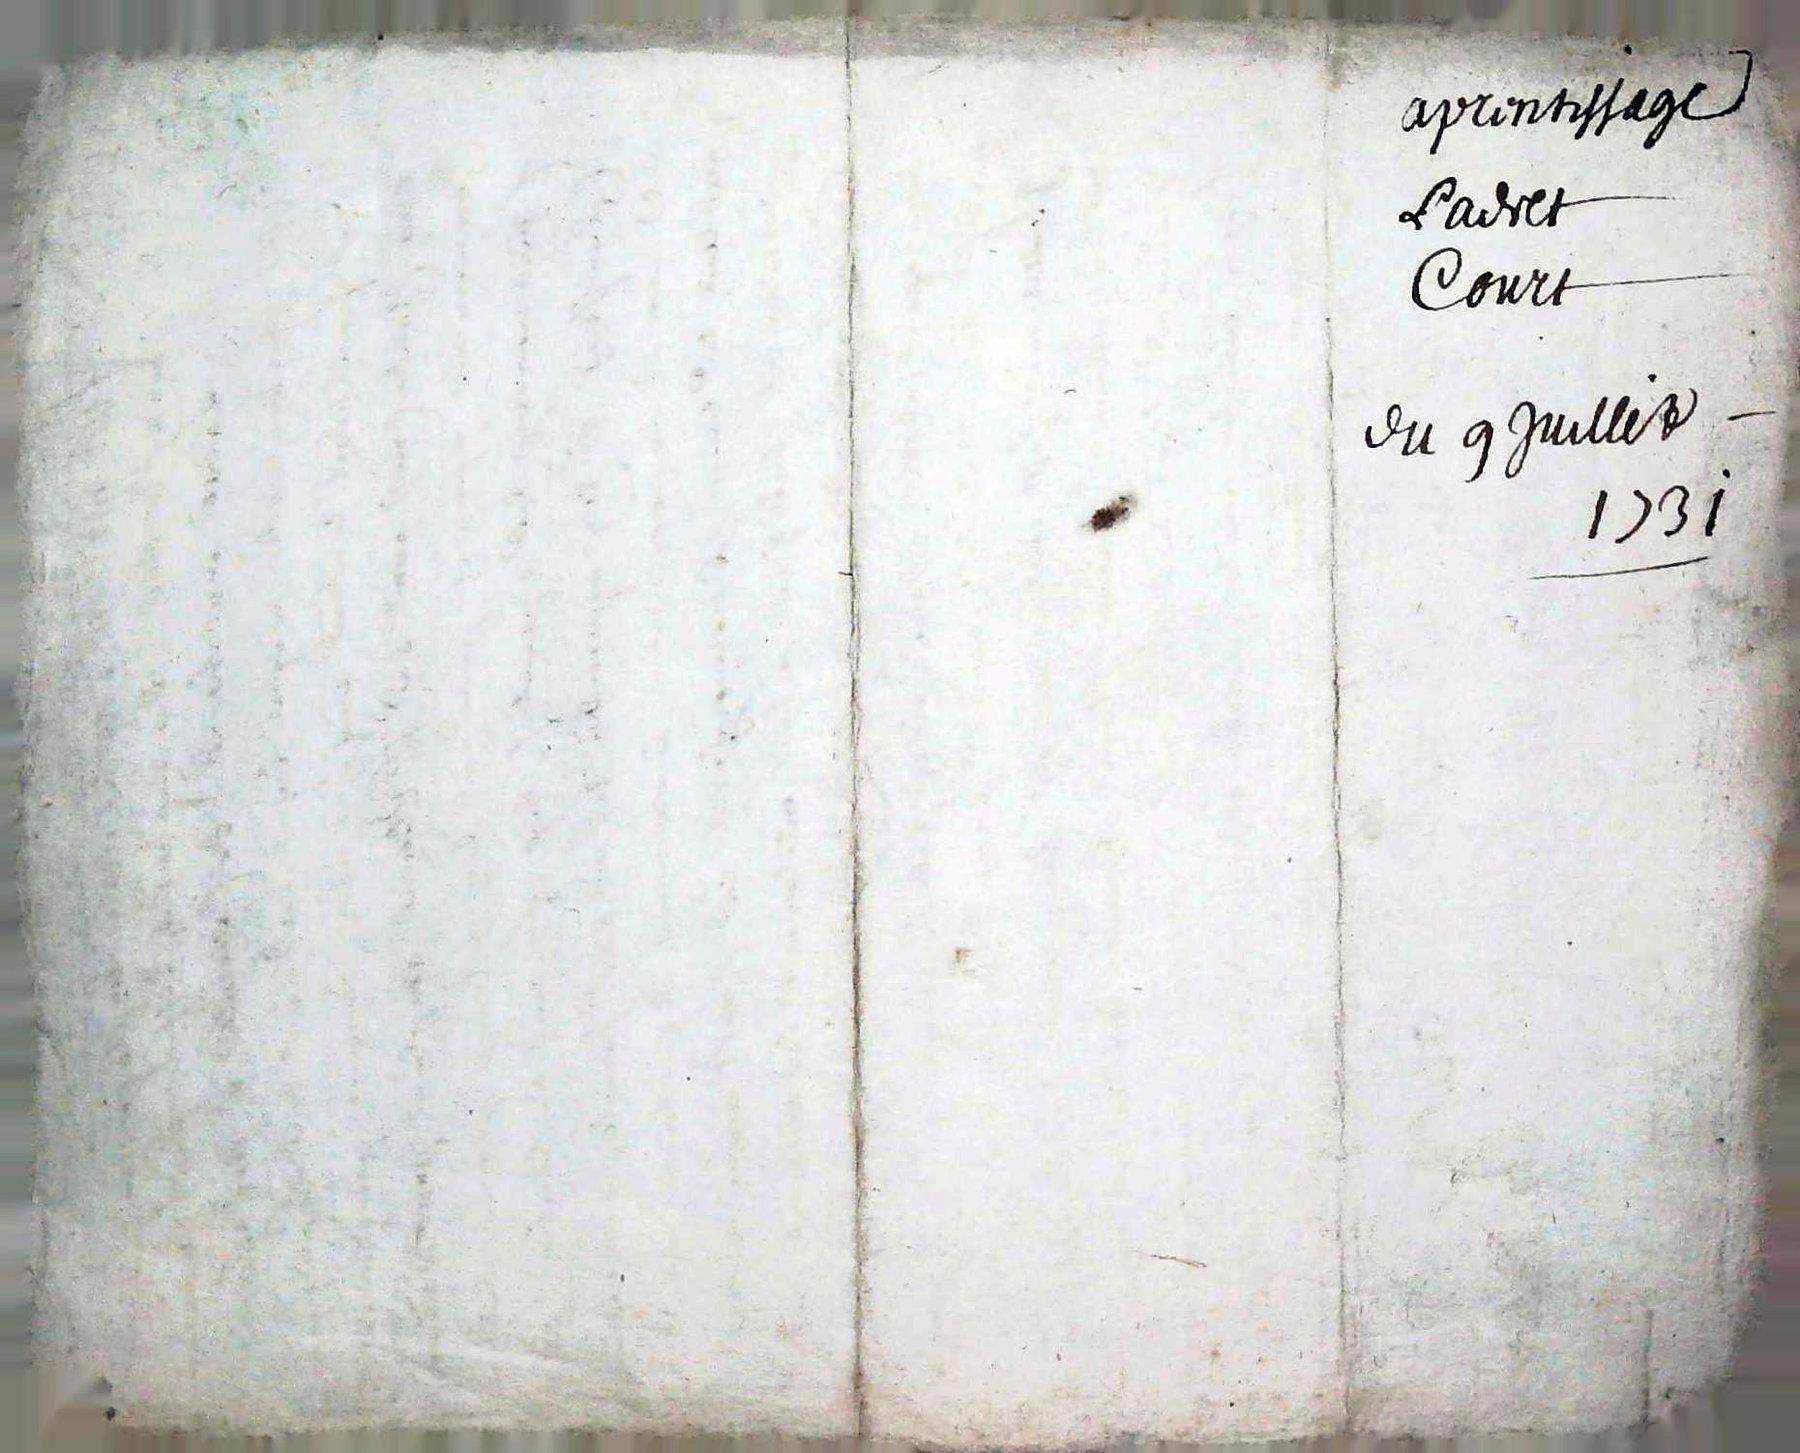 aprentissage
Ladret
Court
du 9 Juillet
1731